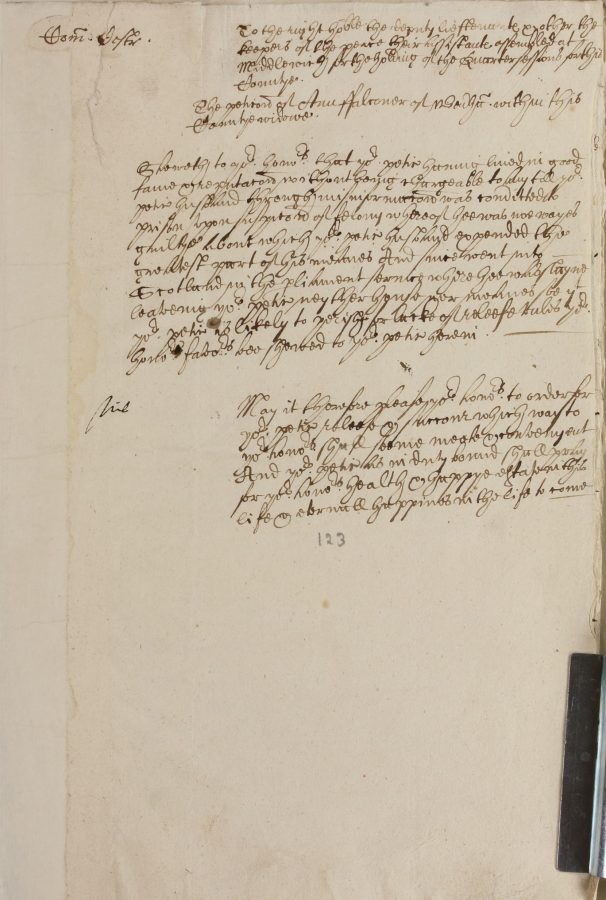 Com. Cestr.
To the right hoble the deputy lieftenante & other the
keepers of the peace their assistants assembled at
Middlewich for the holding of the Quarter sessions for this
Countye.
The peticon of Ann ffalconer of within this
Countye widowe.
Sheweth to yor. honors. that yor. petir having lived in good
fame & reputacon without being chargeable to any till yor.
petir husband through misinformacon was comitted to
prison upon suspicion of felony whereof hee was noe wayes
guiltye About which yor. petir husband expended the
greatest part of his meanes And since went into
Scotland in the pliament service where hee was slayne
leaveing yor. petir neyther house nor meanes soe yt
yor. petir is likely to perish for lacke of releefe unles yor.
honors favors bee shewed to yor. petir herein.
Nil
May it therefore please yor. honors. to order for
yor. petir releefe & succour which way to
yor honors shall seeme meete & convenyent
And yor. petir as in duty bound shall pray
for yor. honors health & happye estate in this
life & eternall happines in the life to come
123